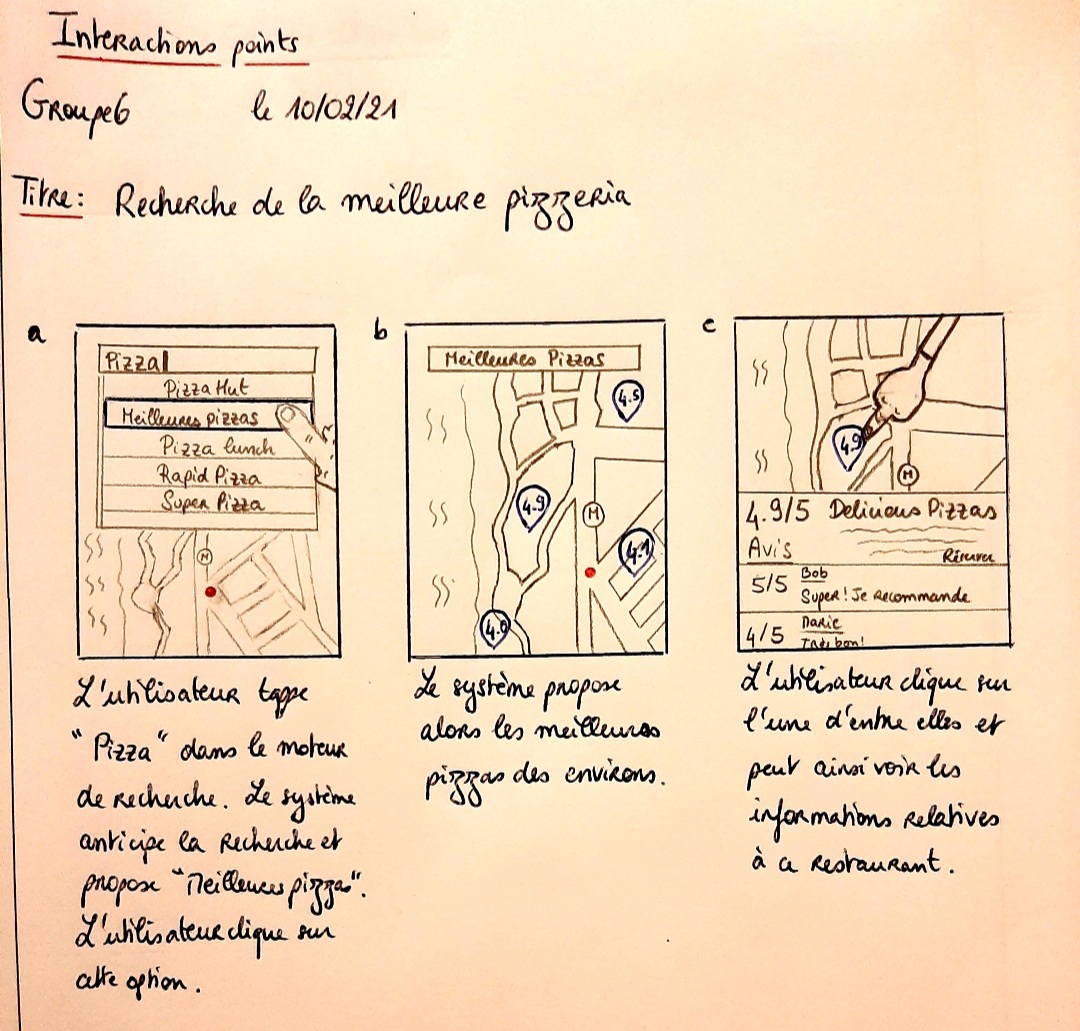 Interactions points
Groupe6 le 10/02/21
Titre: Recherche de la meilleure pizzeria
a
Pizza|
Pizza Hut
Meilleures pizzas
Pizza lunch
Rapid Pizza
Super Pizza
M
L'utilisateur tappe
"Pizza" dans le moteur
de recherche. Le système
anticipe la recherche et
propose "Meilleures pizzas".
L'utilisateur clique sur
cette option.
b
Meilleures Pizzas
4.5
4.9
M
4.1
4.0
Le système propose
alors les meilleures
pizzas des environs.
c
4.9
M
4.9/5 Delicious Pizzas
Avis
Réserver
5/5 Bob
Super! Je recommande
4/5 Marie
Très bon!
L'utilisateur clique sur
l'une d'entre elles et
peut ainsi voir les
informations relatives
à ce restaurant.